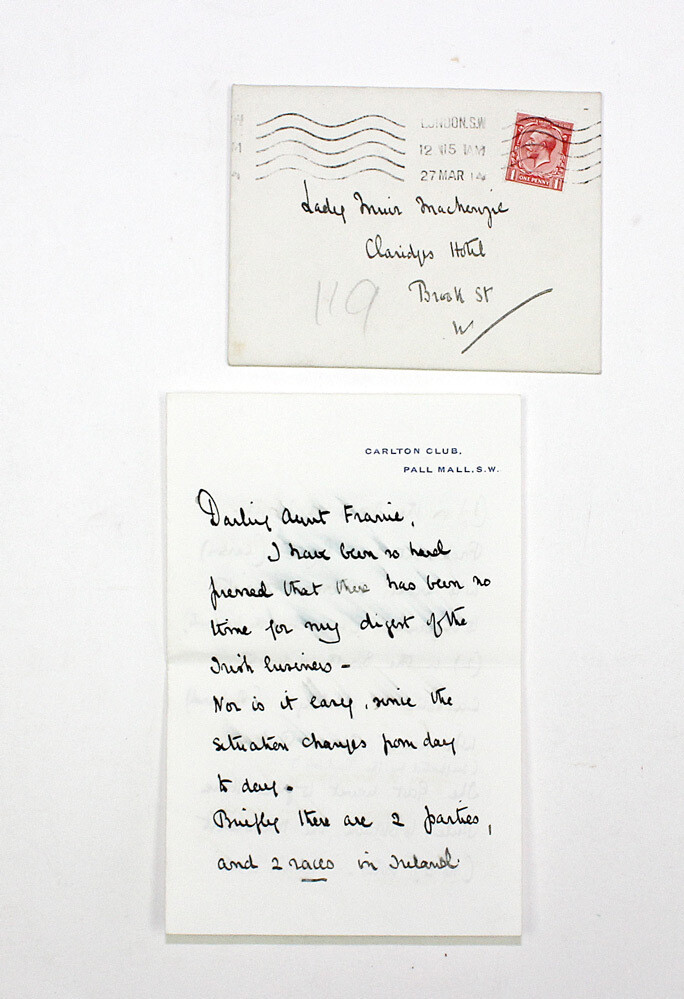 LONDON.S.W
12 15 AM
27 MAR 14
ONE PENNY
Lady Muir Mackenzie
Claridges Hotel
Brook St
W
119
CARLTON CLUB,
PALL MALL, S.W.
Darling Aunt Franie,
I have been so hard
pressed that there has been no
time for my digest of the
Irish business -
Nor is it easy, since the
situation changes from day
to day.
Briefly there are 2 parties,
and 2 races in Ireland.